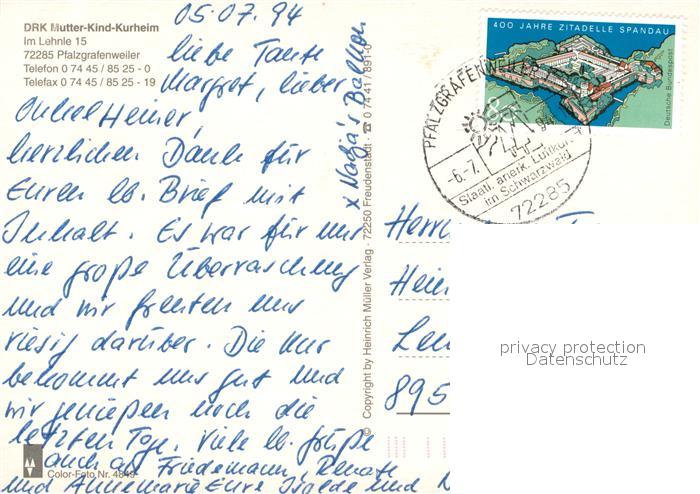 05.07.94
DRK Mutter-Kind-Kurheim
Im Lehnle 15
72285 Pfalzgrafenweiler
Telefon 0 74 45 / 85 25 - 0
Telefax 0 74 45 / 85 25 - 19
liebe Tante
Margret, lieber
Onkel Heiner,
herzlichen Dank für
Euren lb. Brief mit
Inhalt. Es war für uns
eine große Überraschung
und wir freuten uns
riesig darüber. Die Kur
bekommt uns gut und
wir genießen noch die
letzten Tage. Viele lb. Grüße
auch an Friedemann, Renate
und Annemarie Eure Isolde und
Color-Foto Nr. 4849
x Nadja's Balkon
© Copyright by Heinrich Müller Verlag · 72250 Freudenstadt · ☎ 0 74 41 / 891-0
400 JAHRE ZITADELLE SPANDAU
Deutsche Bundespost
PFALZGRAFENWEILER
-6.-7.
Staatl. anerk. Luftkurort
im Schwarzwald
72285
Herrn
Hein
Len
895
privacy protection
Datenschutz